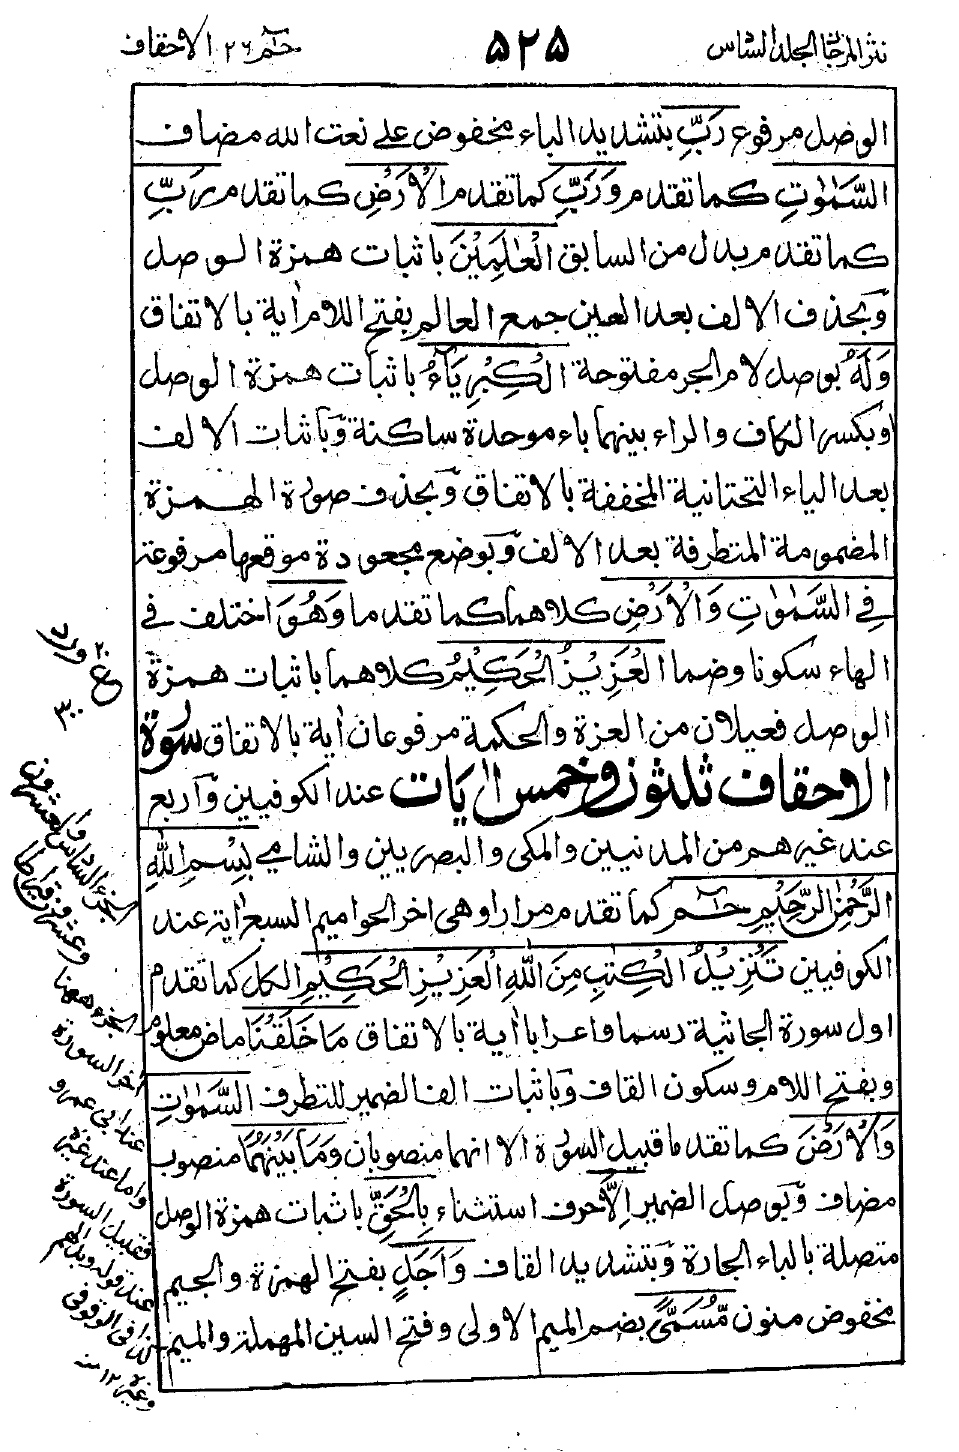 نثر المرجان الجلد السادس
۵۲۵
حٰمٓ ٢٦ الاحقاف
الوصل مرفوع رَبِّ بتشديد الباء مخفوض على نعت الله مضاف
السَّمٰوٰتِ كما تقدم وَرَبِّ كما تقدم الْاَرْضِ كما تقدم رَبِّ
كما تقدم بدل من السابق الْعٰلَمِيْنَ باثبات همزة الوصل
وبحذف الالف بعد العين جمع العالم بفتح اللام اٰية بالاتفاق
وَلَهُ بوصل لام الجر مفتوحة الْكِبْرِيَآءُ باثبات همزة الوصل
وبكسر الكاف والراء بينهما باء موحدة ساكنة وباثبات الالف
بعد الياء التحتانية المخففة بالاتفاق وبحذف صورة الهمزة
المضمومة المتطرفة بعد الالف وبوضع مجعودة موقعها مرفوعة
فِي السَّمٰوٰتِ وَالْاَرْضِ كلاهما كما تقدما وَهُوَ اختلف في
الهاء سكونا وضما الْعَزِيْزُ الْحَكِيْمُ كلاهما باثبات همزة
الوصل فعيلان من العزة والحكمة مرفوعان اٰية بالاتفاق سورة
الاحقاف ثلثون وخمس اٰيات عند الكوفيين واربع
عند غيرهم من المدنيين والمكى والبصريين والشامي بِسْمِ اللهِ
الرَّحْمٰنِ الرَّحِيْمِ حٰمٓ كما تقدم مرارا وهى اخر الحواميم السبع اٰية عند
الكوفيين تَنْزِيْلُ الْكِتٰبِ مِنَ اللهِ الْعَزِيْزِ الْحَكِيْمِ الكل كما تقدم
اول سورة الجاثية رسما واعرابا اٰية بالاتفاق مَا خَلَقْنَا ماض معلوم
وبفتح اللام وسكون القاف وباثبات الف الضمير للتطرف السَّمٰوٰتِ
وَالْاَرْضَ كما تقدما قبيل السورة الا انهما منصوبان وَمَا بَيْنَهُمَا منصوب
مضاف وبوصل الضمير اِلَّا حرف استثناء بِالْحَقِّ باثبات همزة الوصل
متصلة بالباء الجارة وبتشديد القاف وَاَجَلٍ بفتح الهمزة والجيم
مخفوض منون مُّسَمًّى بضم الميم الاولى وفتح السين المهملة والميم
ع ٢٠ ورد
٣٠٠
الجزء السادس والعشرون
وعشرون قيراطا
الجزء وههنا
اخر السورة
عند ابى عمرو
واما عند غيره
فقبيل السورة
عند قوله وبدا لهم
كذا فى الوقوفى
وغيره ١٢ منه